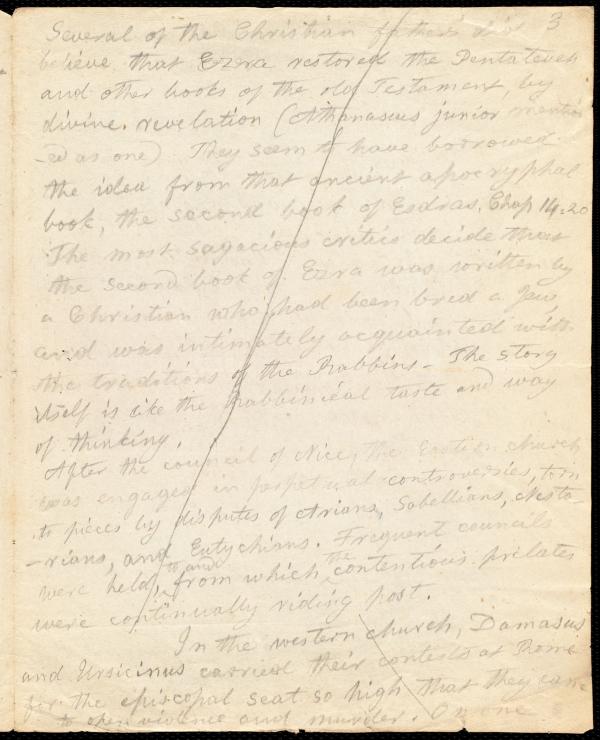 Several of the Christian fathers did 3
believe that Ezra restored the Pentateuch
and other books of the old Testament, by
divine revelation (Athanasius junior mentio
-ed as one) They seem to have borrowed
the idea from that ancient apocryphal
book, the second book of Esdras, Chap 14:20
The most sagacious critics decide that
the second book of Ezra was written by
a Christian who had been bred a Jew,
and was intimately acquainted with
the traditions of the Rabbins - The story
itself is like the Rabbinical taste and way
of thinking.
After the council of Nice, the church
was engaged in perpetual controversies, torn
to pieces by disputes of Arians, Sabellians, Nesto-
-rians, and Eutychians. Frequent councils
were held, to and from which the contentious prelates
were continually riding post.
In the western church, Damasus
and Ursicinus carried their contests at Rome
for the episcopal seat so high that they came
to open violence and murder. On one